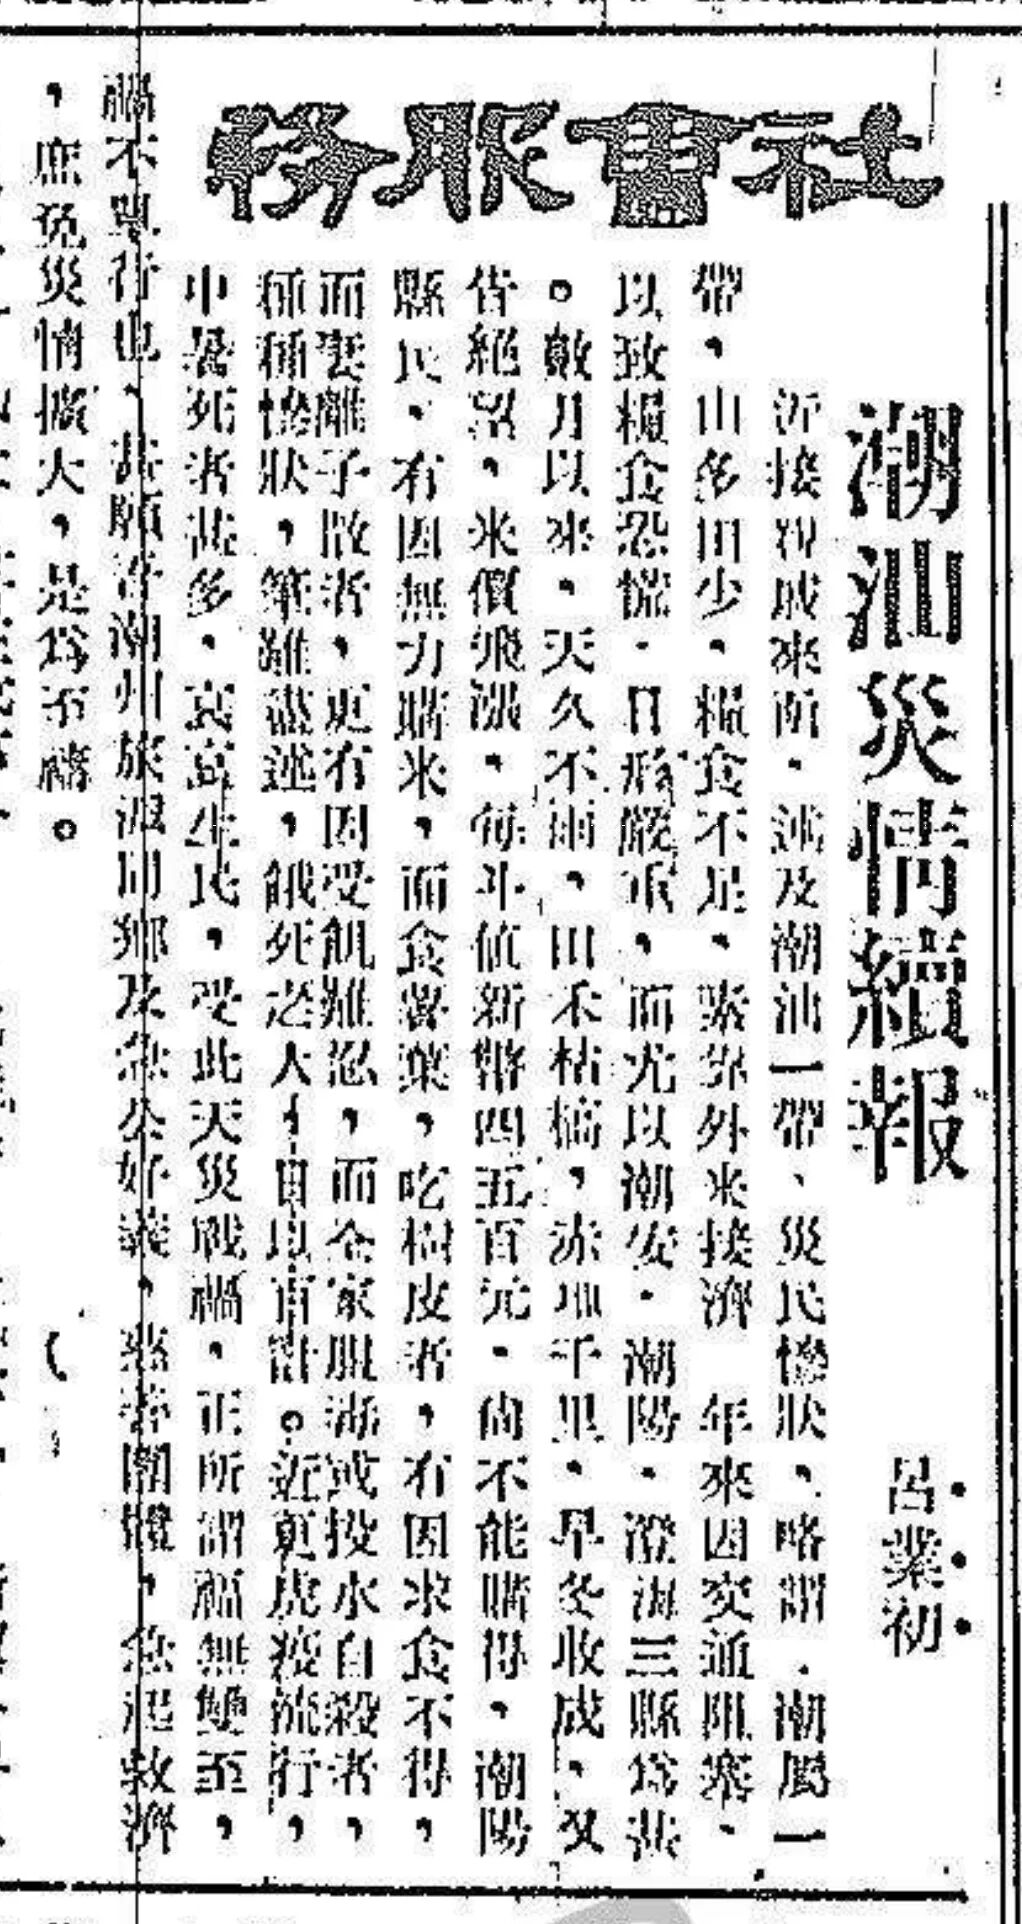 社會服務
潮汕災情續報
呂業初
近接親戚來函，述及潮汕一帶、災民慘狀、略謂．潮屬一
帶，山多田少，糧食不足，素靠外來接濟　年來因交通阻塞，
以致糧食恐慌．日形嚴重，而尤以潮安．潮陽．澄海三縣為甚
。數月以來，天久不雨，田禾枯槁，赤地千里，早冬收成，又
皆絕望，米價飛漲，每斗值新幣四五百元．尚不能購得，潮陽
縣民，有因無力購米，而食薯葉，吃樹皮者，有因求食不得，
而妻離子散者，更有因受飢難忍，而全家服毒或投水自殺者，
種種慘狀，筆難盡述，餓死之人，日以百計。近更虎疫流行，
中暑死者甚多，哀哀生民，受此天災戰禍，正所謂福無雙至，
禍不單行也，甚願許潮州旅滬同鄉及急公好義，慈善團體，急起救濟
，庶免災情擴大，是為至禱。